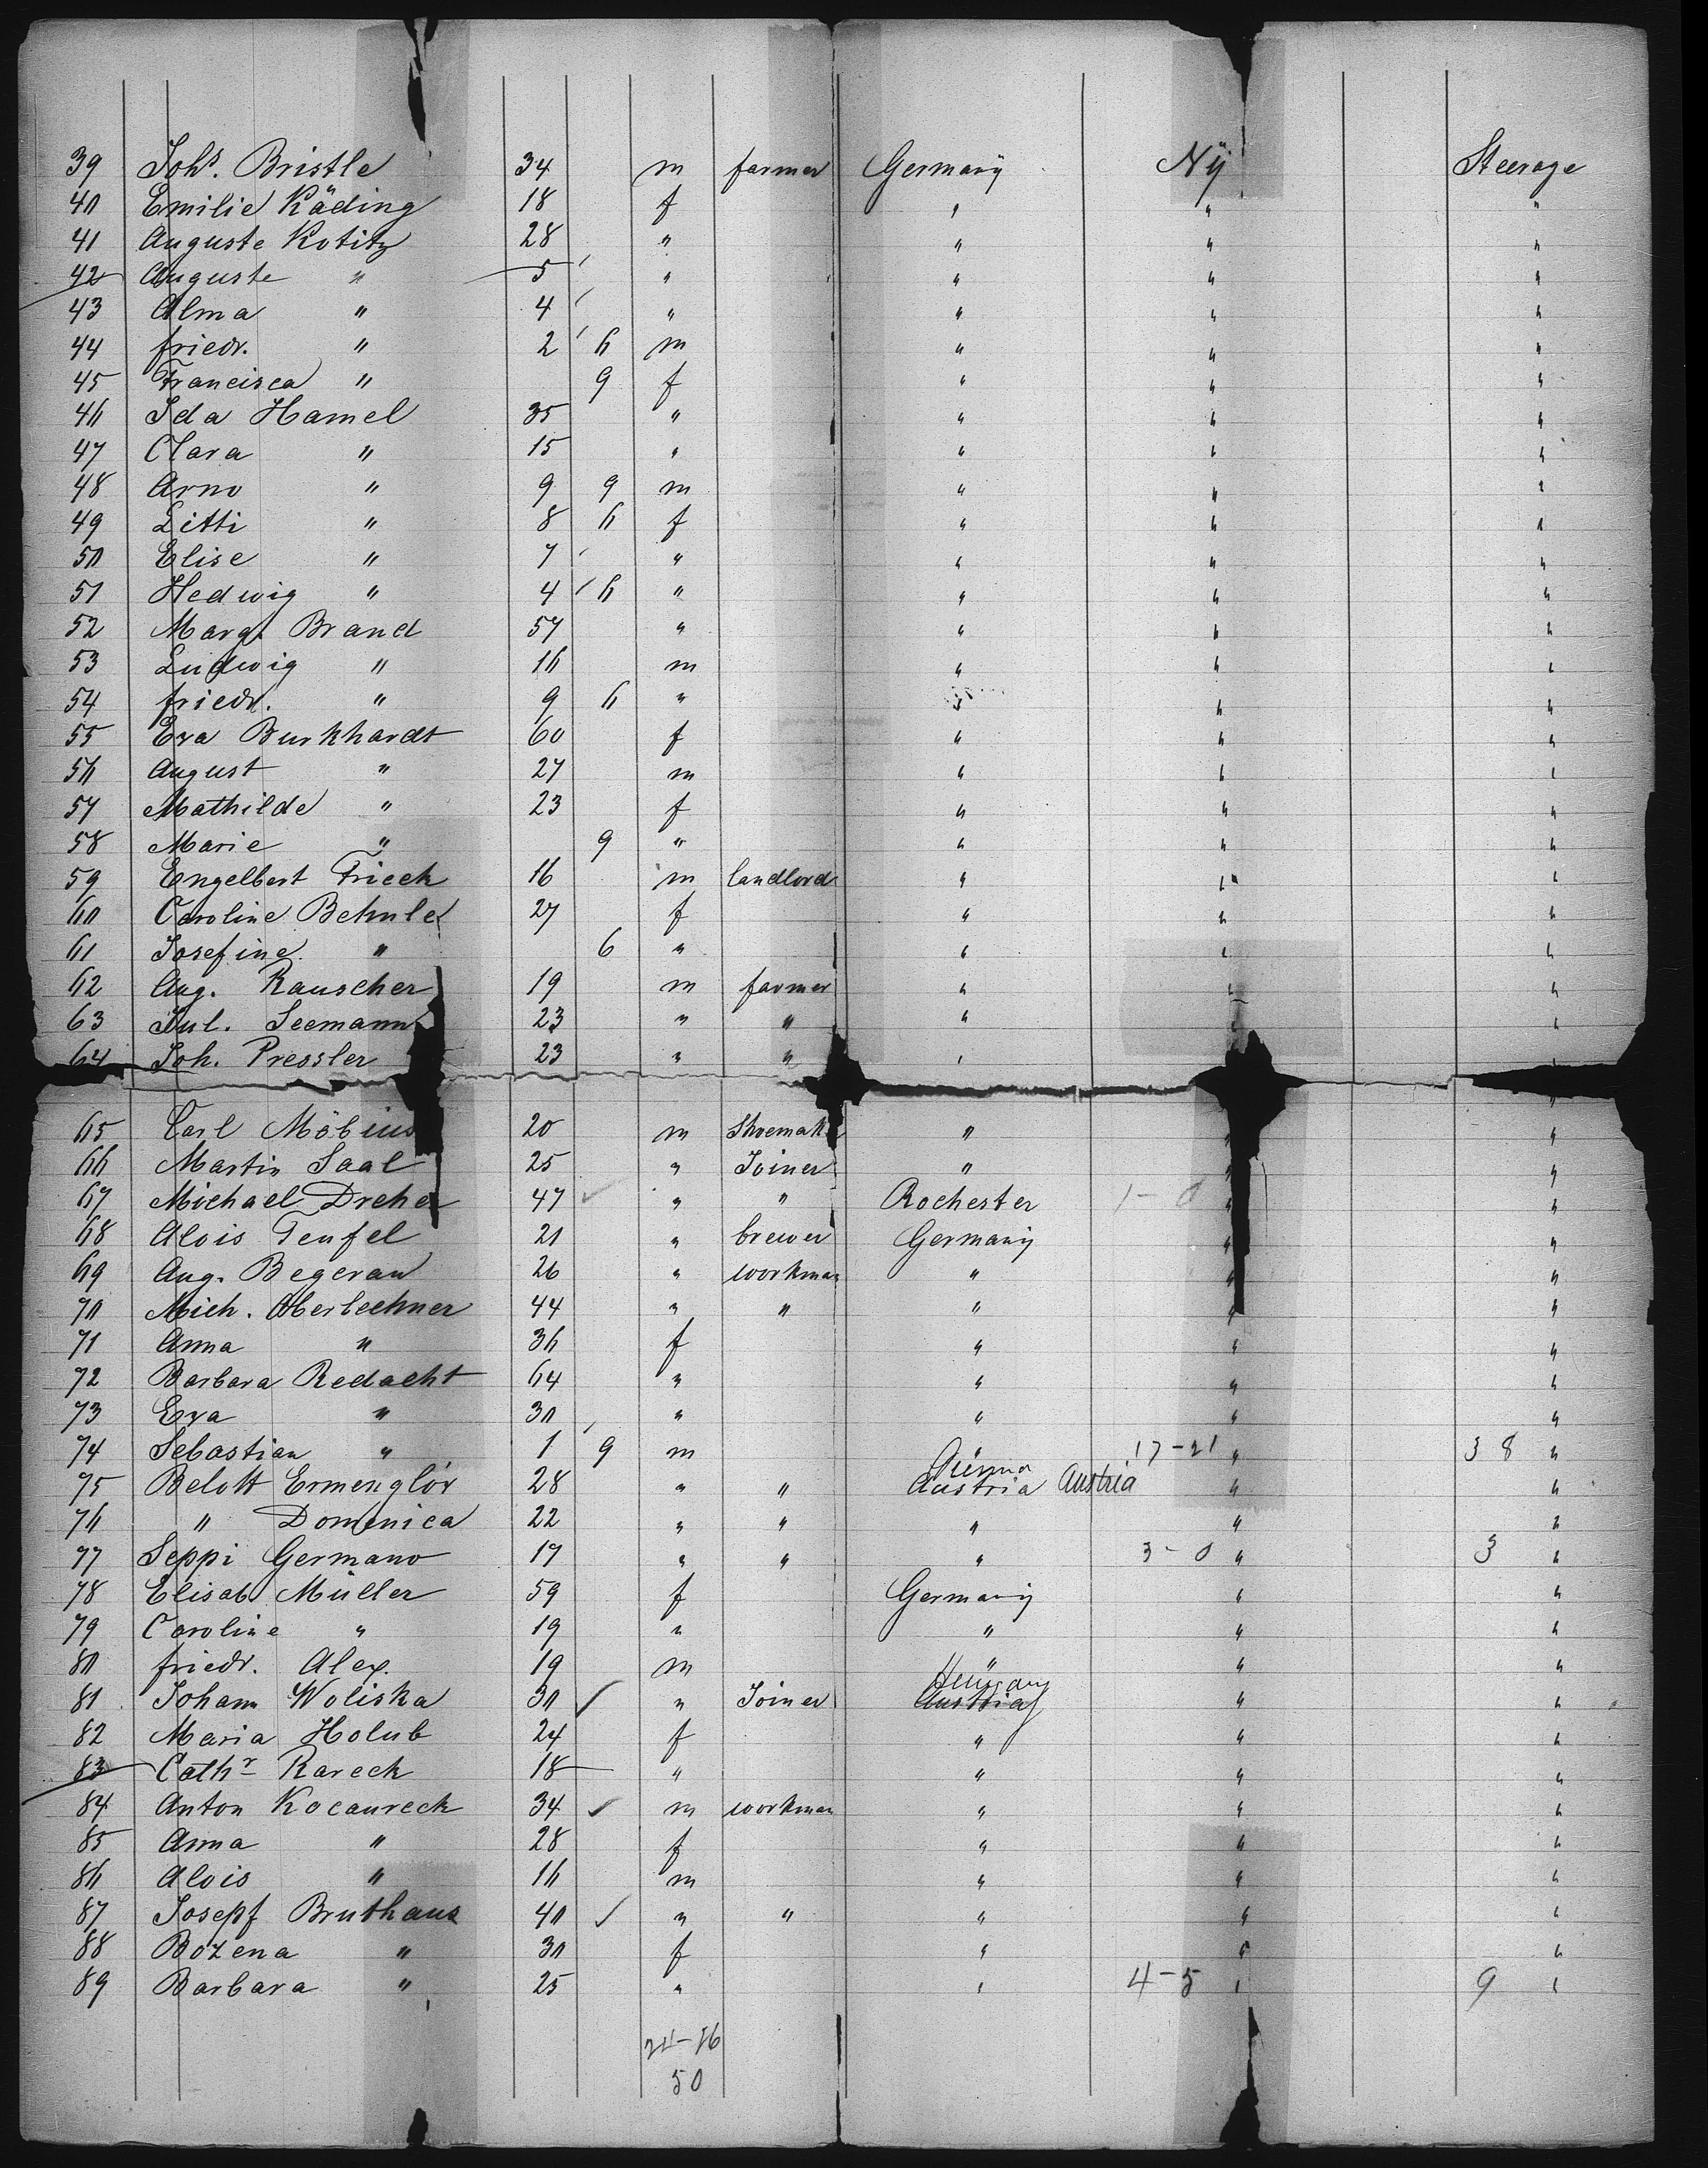 39 Johs. Bristle 34 m farmer Germany Ny Steerage
40 Emilie Käding 18 f " " "
41 Auguste Kotitz 28 " " " "
42 Auguste " 5 " " " "
43 Alma " 4 " " " "
44 friedr. " 2 6 m " " "
45 Francisca " 9 f " " "
46 Ida Hamel 35 " " " "
47 Clara " 15 " " " "
48 Arno " 9 9 m " " "
49 Litti " 8 6 f " " "
50 Elise " 7 " " " "
51 Hedwig " 4 6 " " " "
52 Marg. Brand 57 " " " "
53 Ludwig " 16 m " " "
54 friedr. " 9 6 " " " "
55 Eva Burkhardt 60 f " " "
56 August " 27 m " " "
57 Mathilde " 23 f " " "
58 Marie " 9 " " " "
59 Engelbert Frieck 16 m landlord " " "
60 Caroline Behnle 27 f " " "
61 Josefine " 6 " " " "
62 Aug. Rauscher 19 m farmer " " "
63 Jul. Seemann 23 " " " " "
64 Joh. Pressler 23 " " " "
65 Carl Möbius 20 m Shoemake " " "
66 Martin Saal 25 " Joiner " " "
67 Michael Dreher 47 " " Rochester 1-0 " "
68 Alois Teufel 21 " brewer Germany " "
69 Aug. Begerau 26 " workman " " "
70 Mich. Oberlechner 44 " " " " "
71 Anna " 36 f " " "
72 Barbara Redacht 64 " " " "
73 Eva " 30 " " " "
74 Sebastian " 1 9 m " 17-21 " 38 "
75 Belott Ermenglör 28 " " Austria Austria " "
76 " Domenica 22 " " " " "
77 Seppi Germano 17 " " " 3-0 " 3 "
78 Elisab Müller 59 f Germany " "
79 Caroline " 19 " " " "
80 friedr. Alex. 19 m " " "
81 Johann Woliska 30 " Joiner Austria " "
82 Maria Holub 24 f " " "
83 Cathr Kareck 18 " " " "
84 Anton Kocaureck 34 m workman " " "
85 Anna " 28 f " " "
86 Alois " 16 m " " "
87 Josepf Bruthans 40 " " " " "
88 Bozena " 30 f " " "
89 Barbara " 25 " " 4-5 " 9 "
50